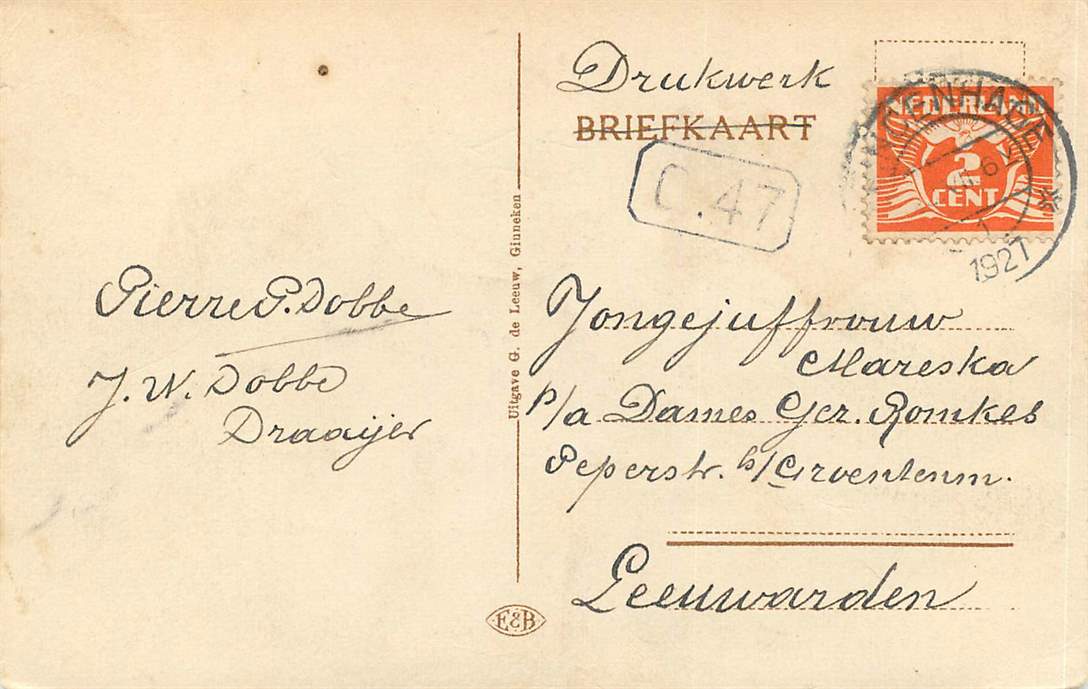 Drukwerk
BRIEFKAART
NEDERLAND
2
CENT
1
1927
C.47
Pierre P. Dobbe
J. W. Dobbe
Draaijer
Uitgave G. de Leeuw, Ginneken
Jongejuffrouw
Mareska
p/a Dames Ger. Romkes
Peperstr. b/ Groentenm.
Leeuwarden
E&B